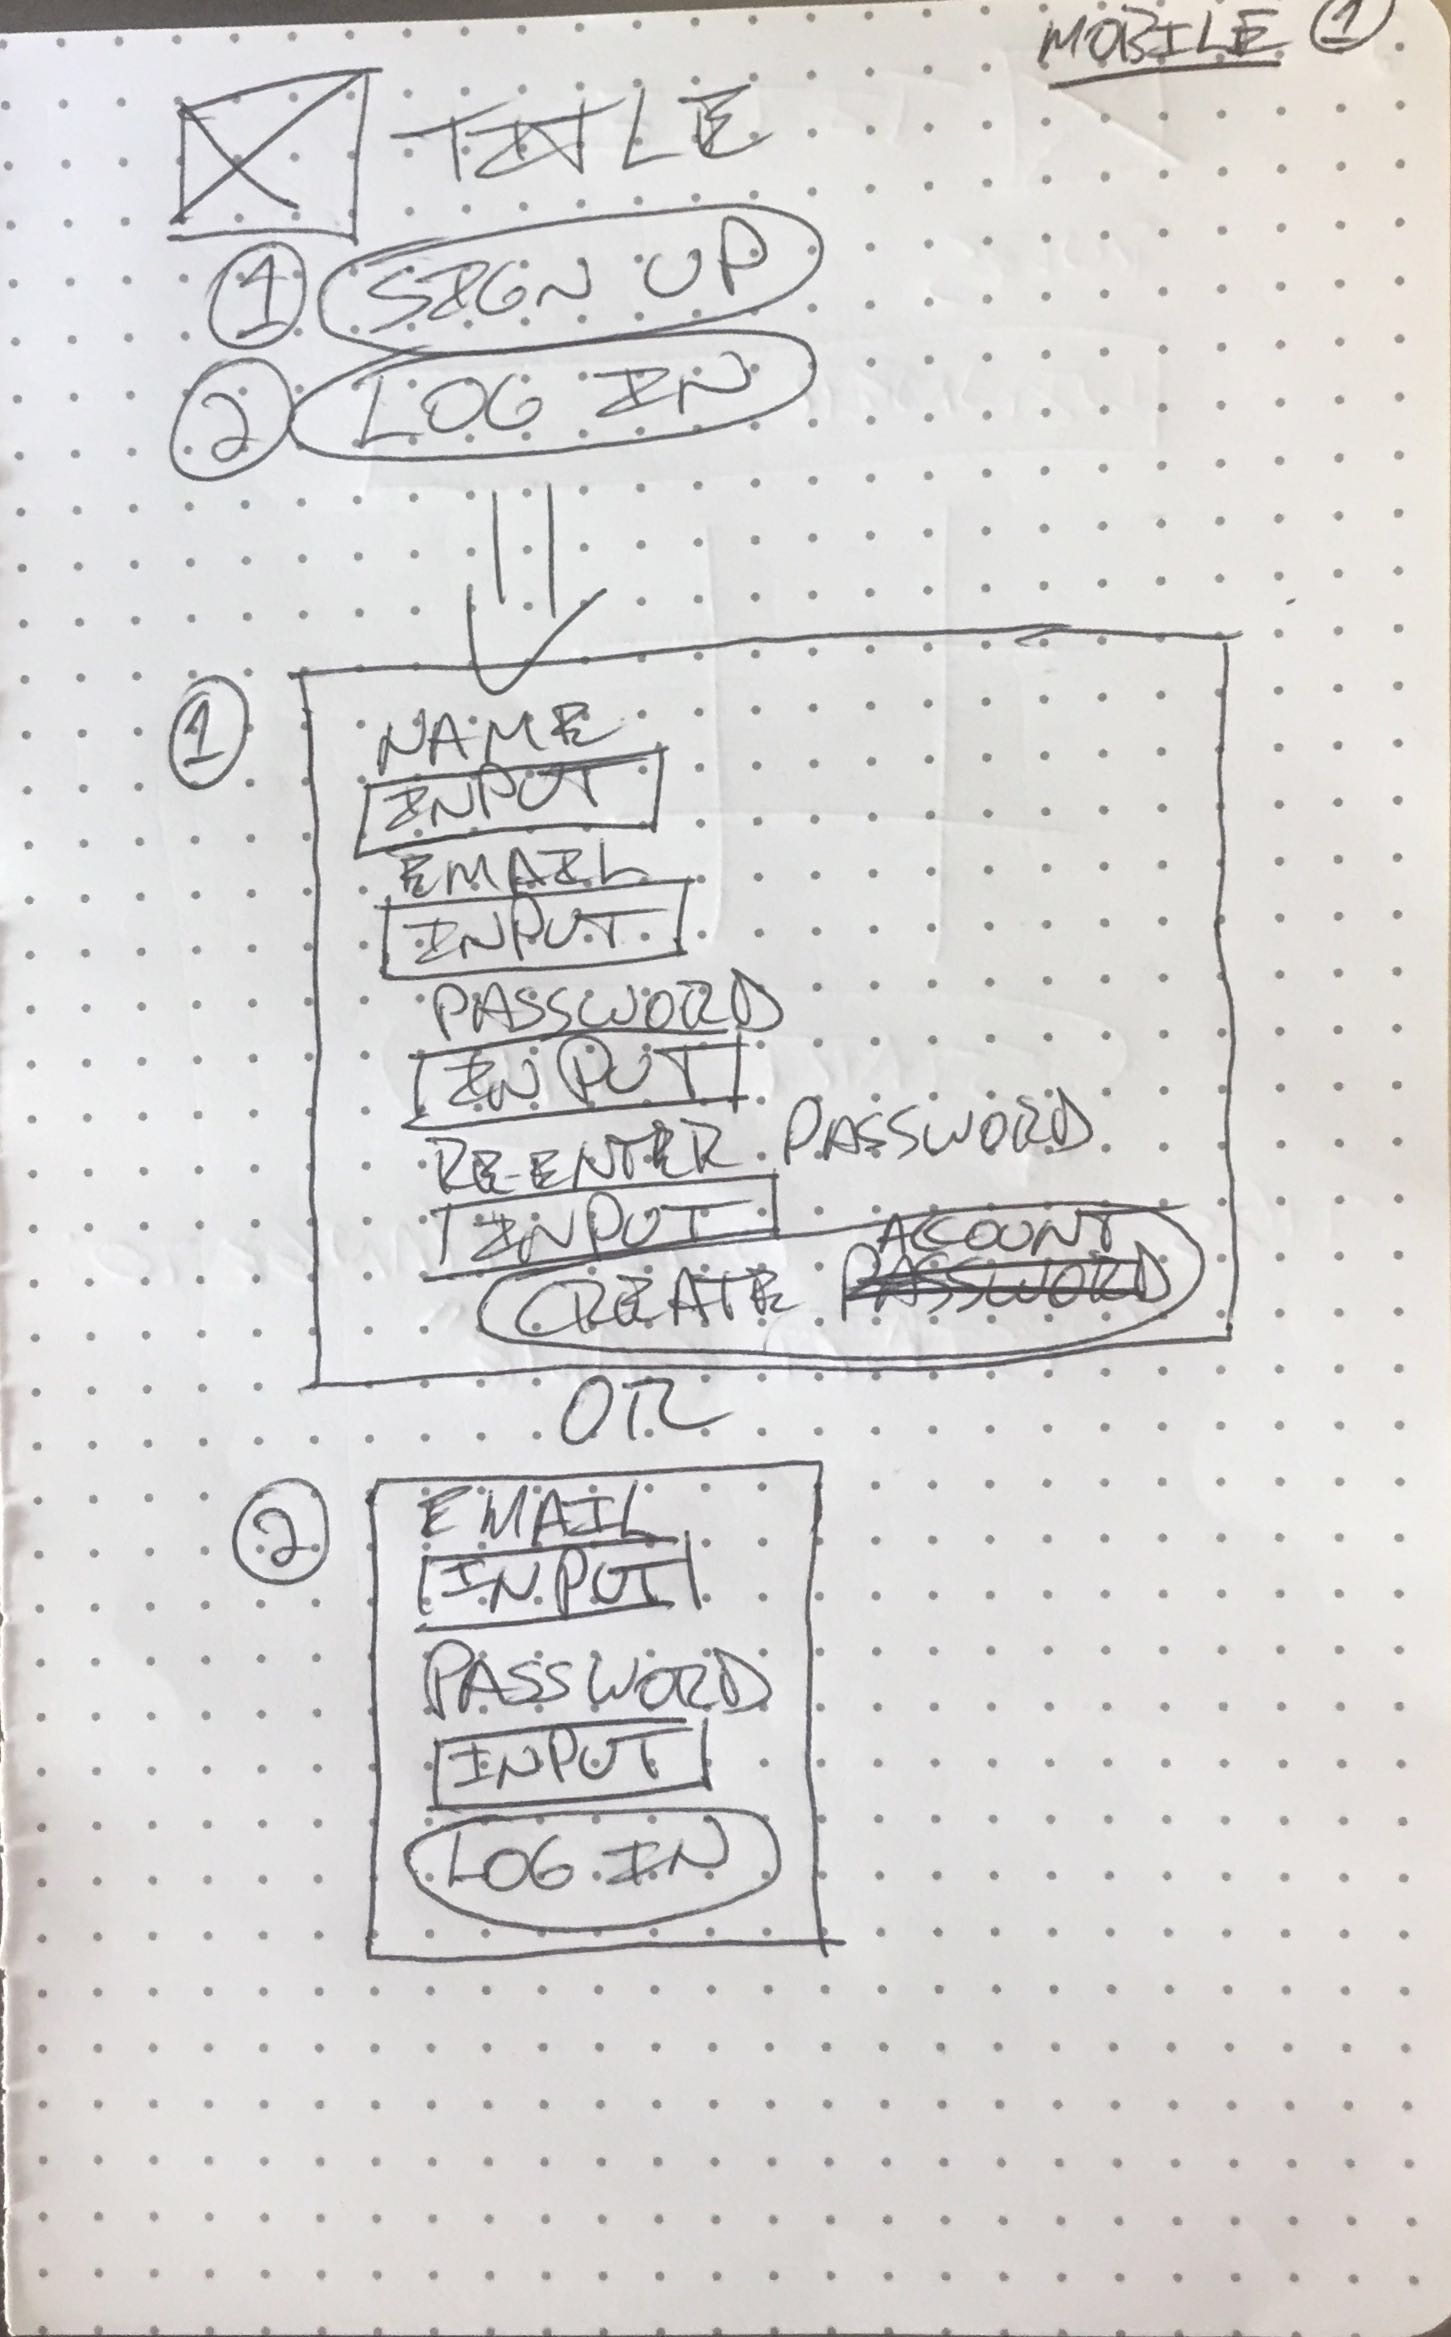 MOBILE 1
TITLE
1 SIGN UP
2 LOG IN
1
NAME
INPUT
EMAIL
INPUT
PASSWORD
INPUT
RE-ENTER PASSWORD
INPUT
ACCOUNT
CREATE PASSWORD
OR
2
EMAIL
INPUT
PASSWORD
INPUT
LOG IN